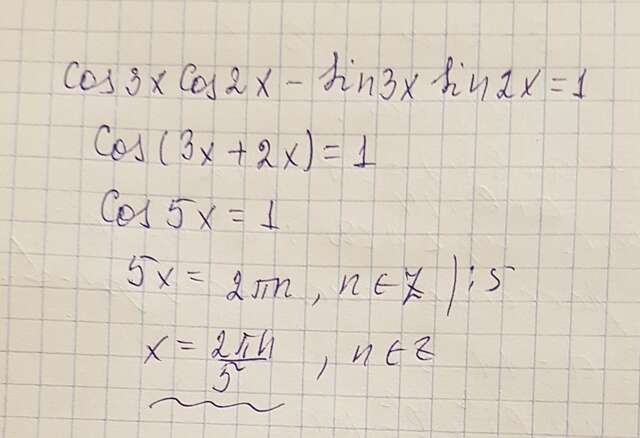 cos3x cos2x - sin3x sin2x = 1
cos(3x + 2x) = 1
cos 5x = 1
5x = 2πn, n ∈ Z ) : 5
x = 2πn/5, n ∈ Z